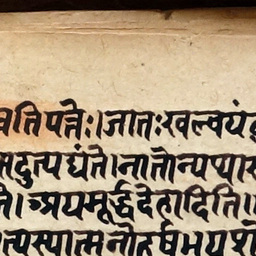 त्तिपत्तेः।जातःखल्वयं
दुत्पद्यंते।नातोन्यप्या
ते।अयमूर्द्ध्वदेहादिति॥
त्यस्यात्मनोहर्षभयशो